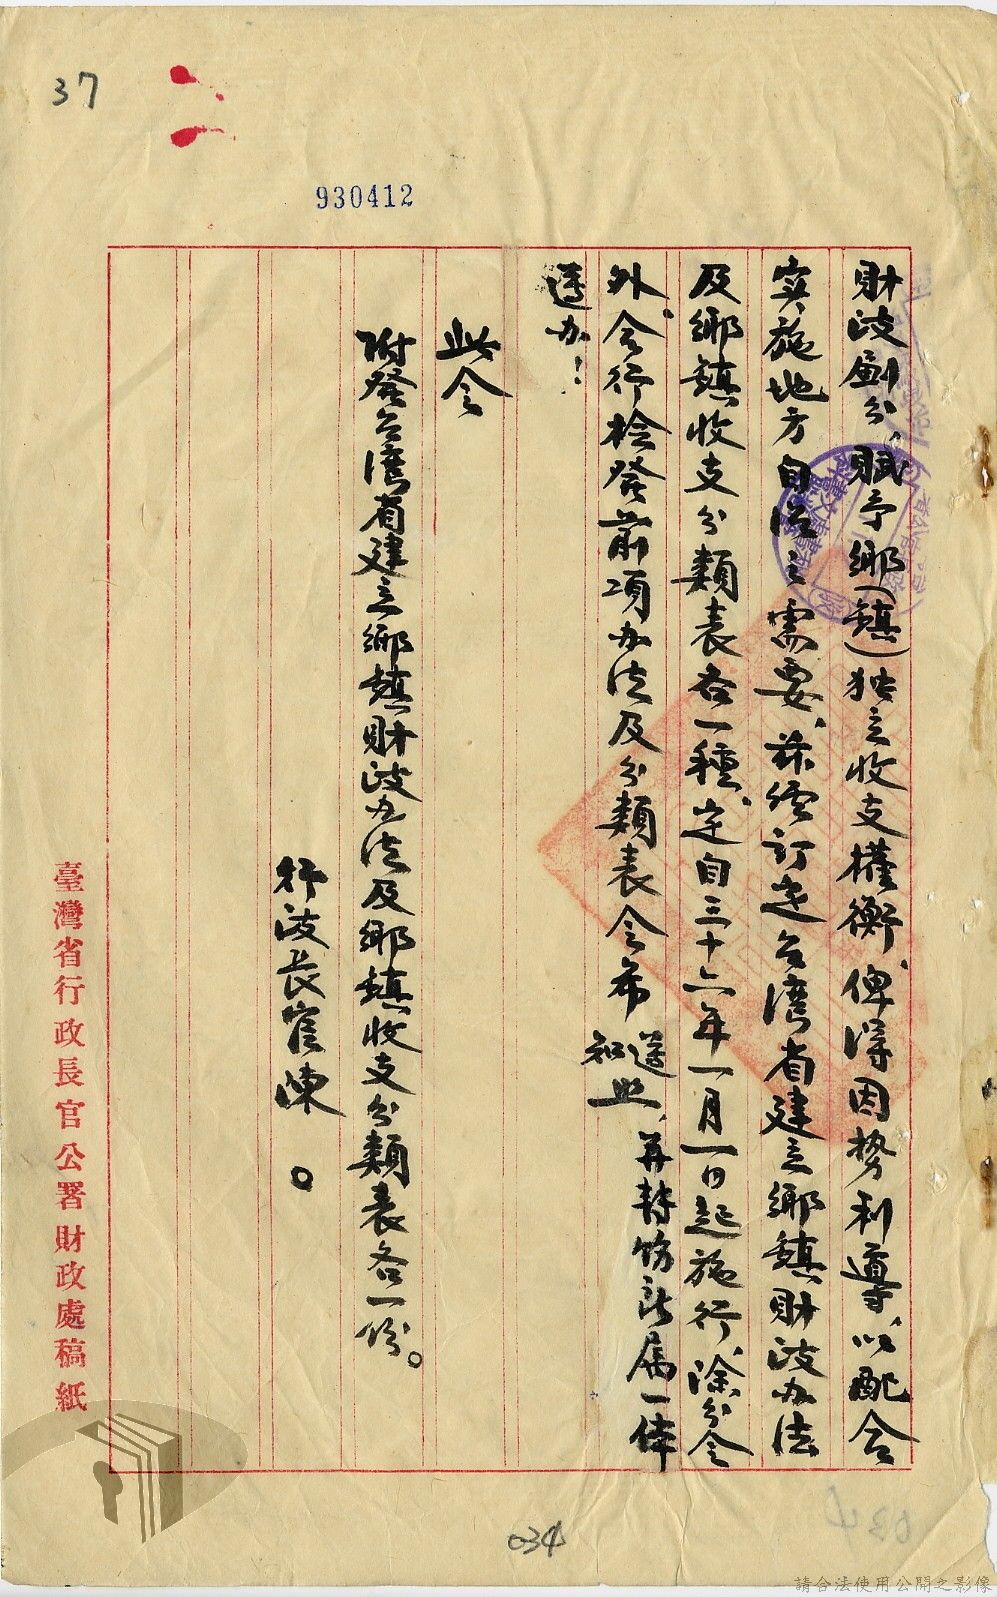 37
930412
財政劃分、賦予鄉(鎮)独立收支權衡、俾得因势利導、以配合
实施地方自治之需要、茲經订定台湾省建立鄉鎮財政办法
及鄉鎮收支分類表各一種、定自三十六年一月一日起施行、除分令
外、令行检發前項办法及分類表令希遵照、并轉飭所属一体
知
遵办！
此令
附發台湾省建立鄉鎮財政办法及鄉鎮收支分類表各一份。
行政長官陳〇
臺灣省行政長官公署財政處稿紙
034
請合法使用公開之影像